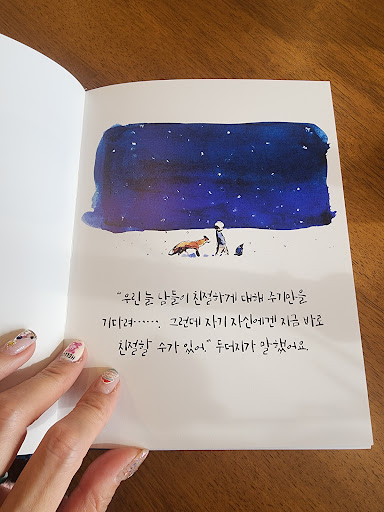 "우린 늘 남들이 친절하게 대해 주기만을
기다려……. 그런데 자기 자신에겐 지금 바로
친절할 수가 있어." 두더지가 말했어요.